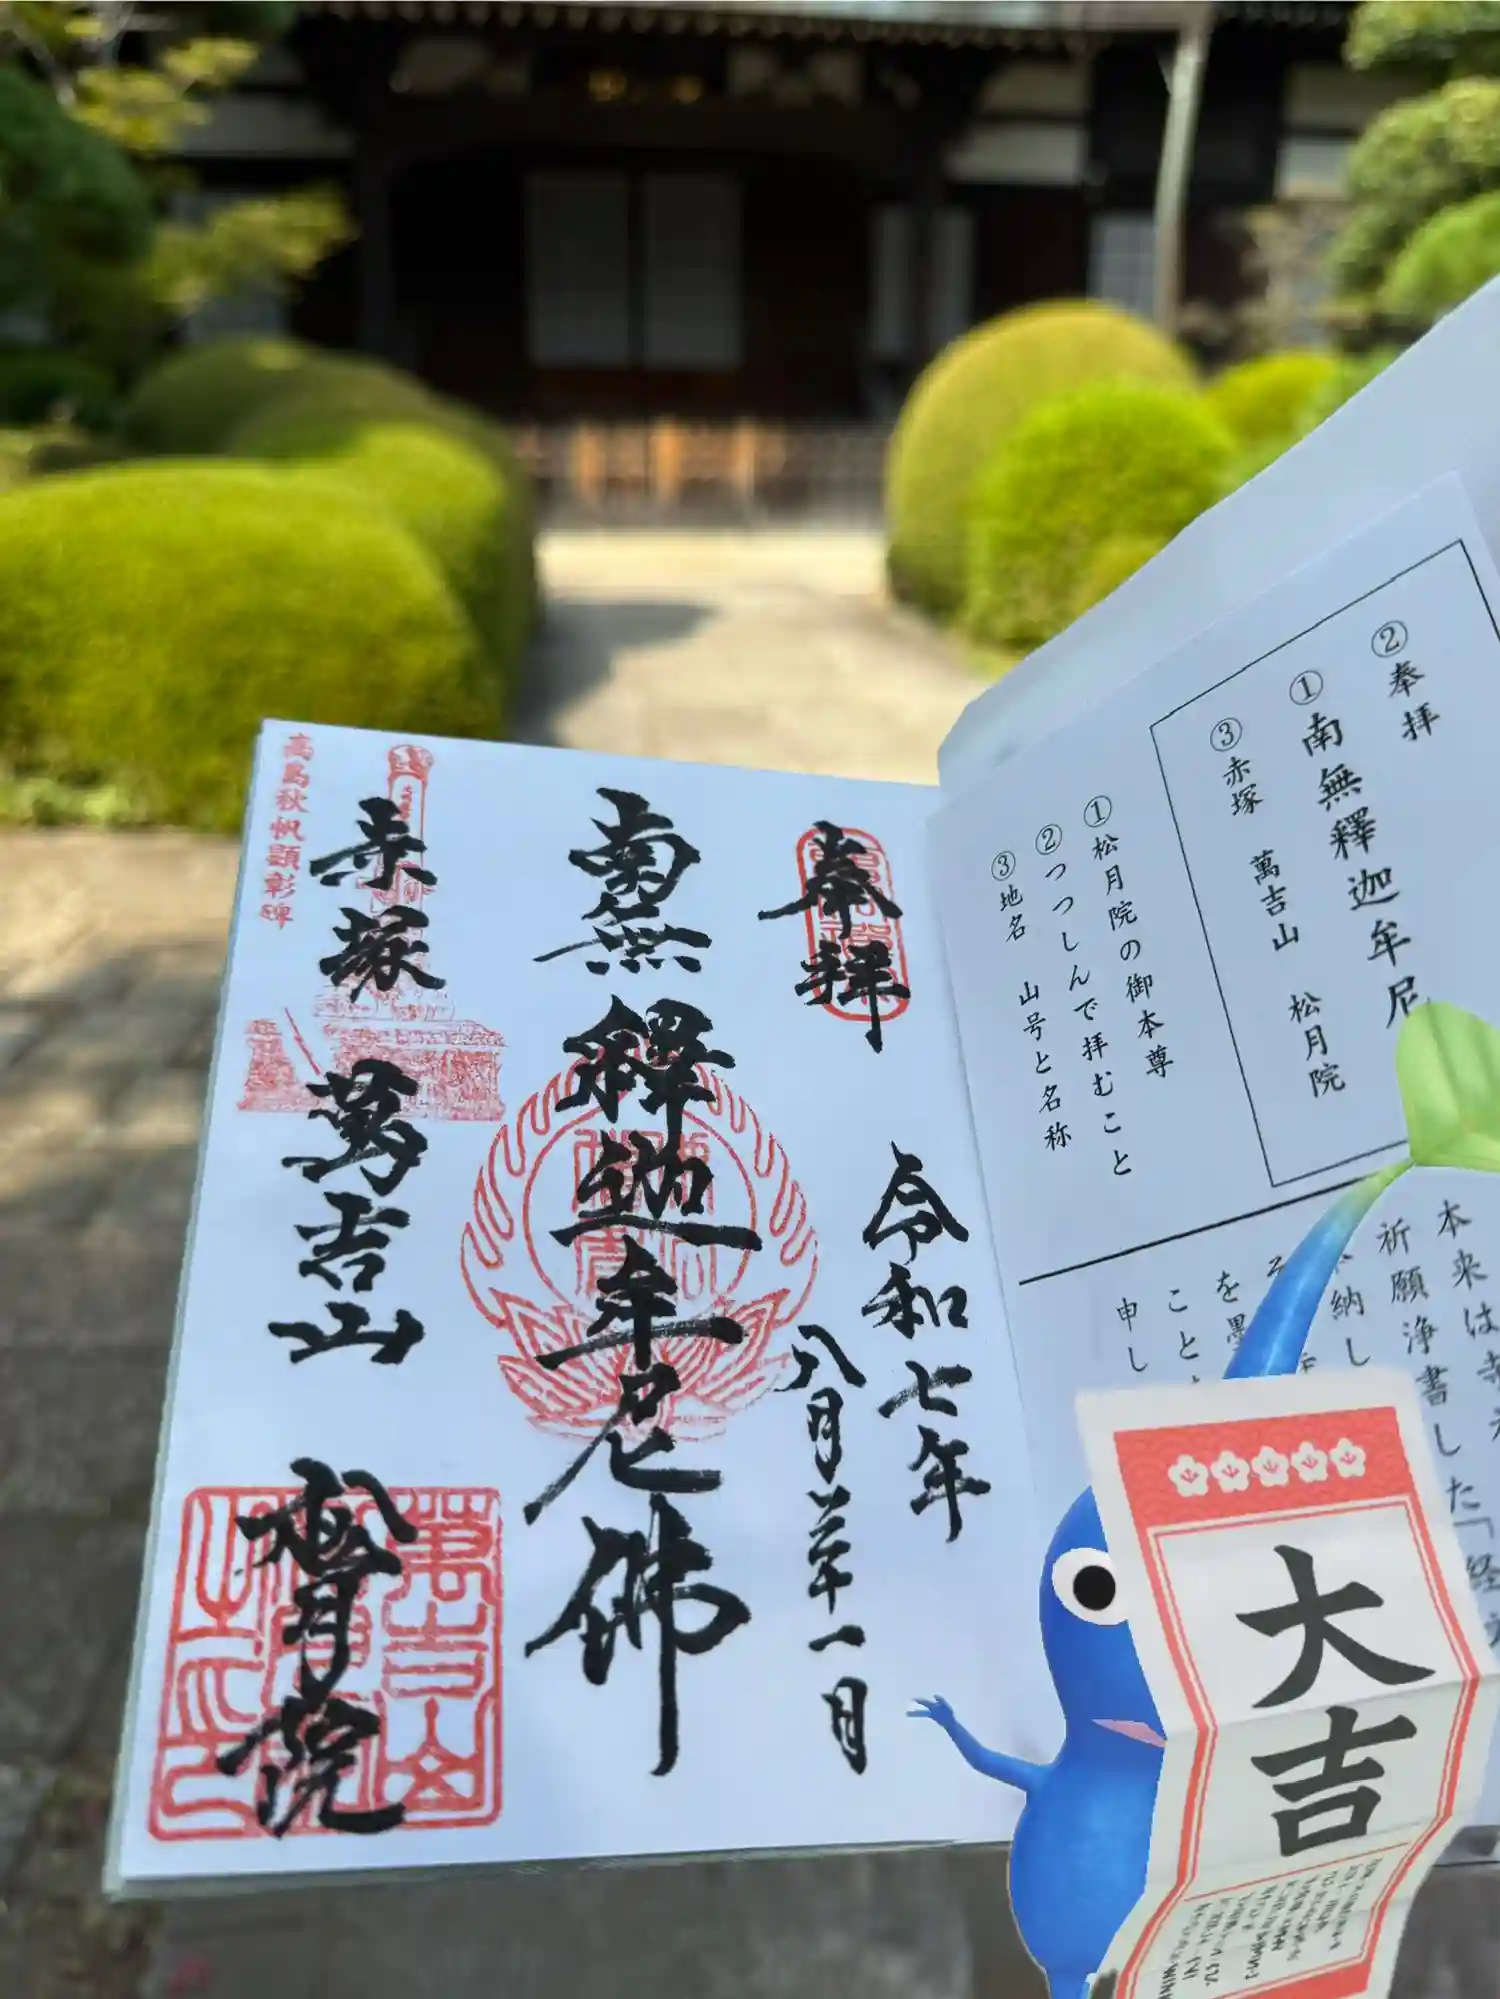 ②奉拝
①南無釋迦牟尼
③赤塚 萬吉山 松月院
①松月院の御本尊
②つつしんで拝むこと
③地名 山号と名称
本来は
祈願浄書した「経
納し
を墨
こと
申し
奉拝
令和七年
八月三十一日
南無釋迦牟尼佛
赤塚 萬吉山 松月院
高島秋帆顕彰碑
萬吉山
大吉